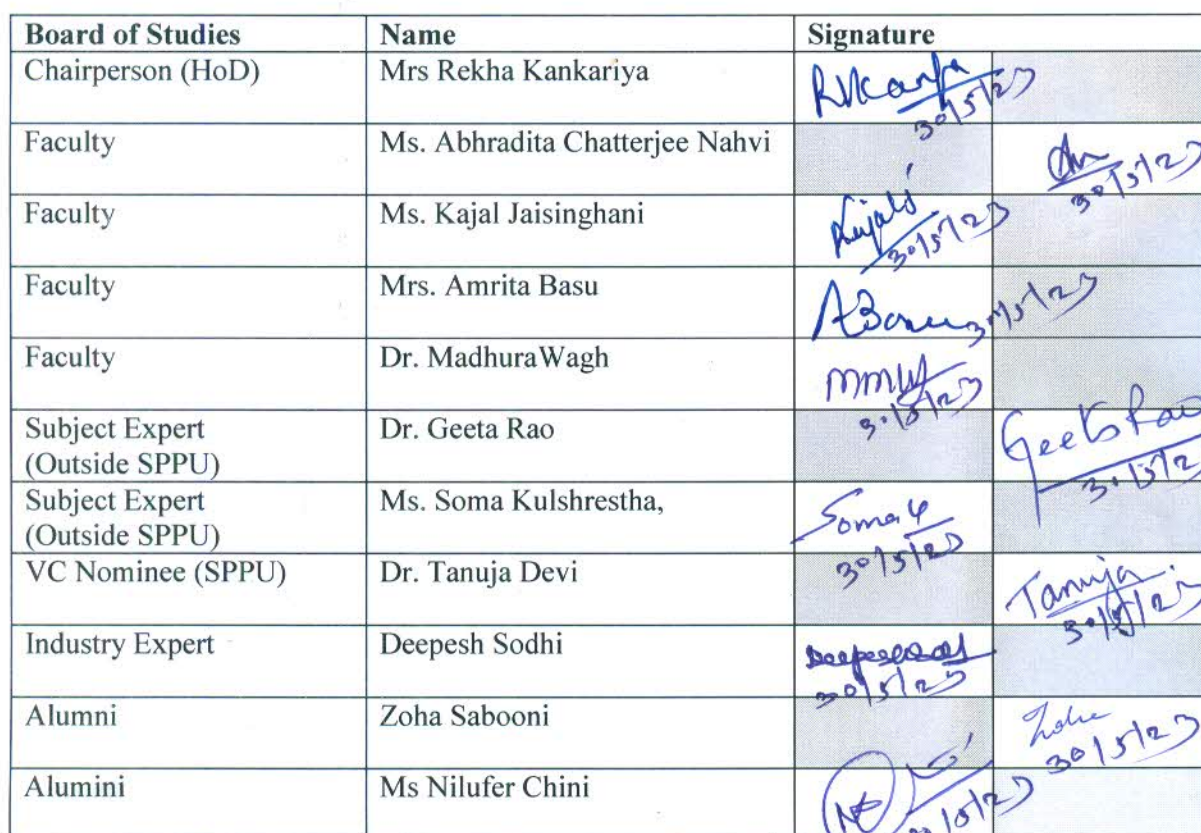 Board of Studies Name Signature
Chairperson (HoD) Mrs Rekha Kankariya
30/5/23
Faculty Ms. Abhradita Chatterjee Nahvi
30/5/23
Faculty Ms. Kajal Jaisinghani
30/5/23
Faculty Mrs. Amrita Basu ABasu 30/5/23
Faculty Dr. MadhuraWagh
30/5/23
Subject Expert Dr. Geeta Rao Geeta Rao
(Outside SPPU) 30/5/2
Subject Expert Ms. Soma Kulshrestha, Soma
(Outside SPPU) 30/5/23
VC Nominee (SPPU) Dr. Tanuja Devi Tanuja
30/5/23
Industry Expert Deepesh Sodhi
30/5/23
Alumni Zoha Sabooni Zoha
30/5/23
Alumini Ms Nilufer Chini